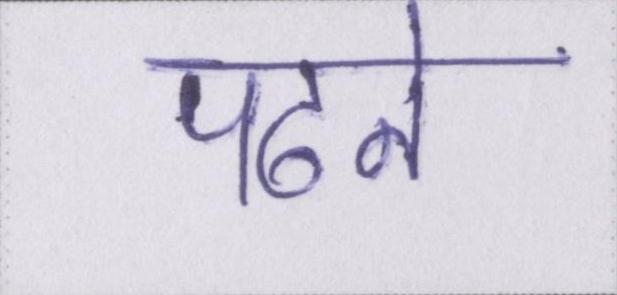 पढने